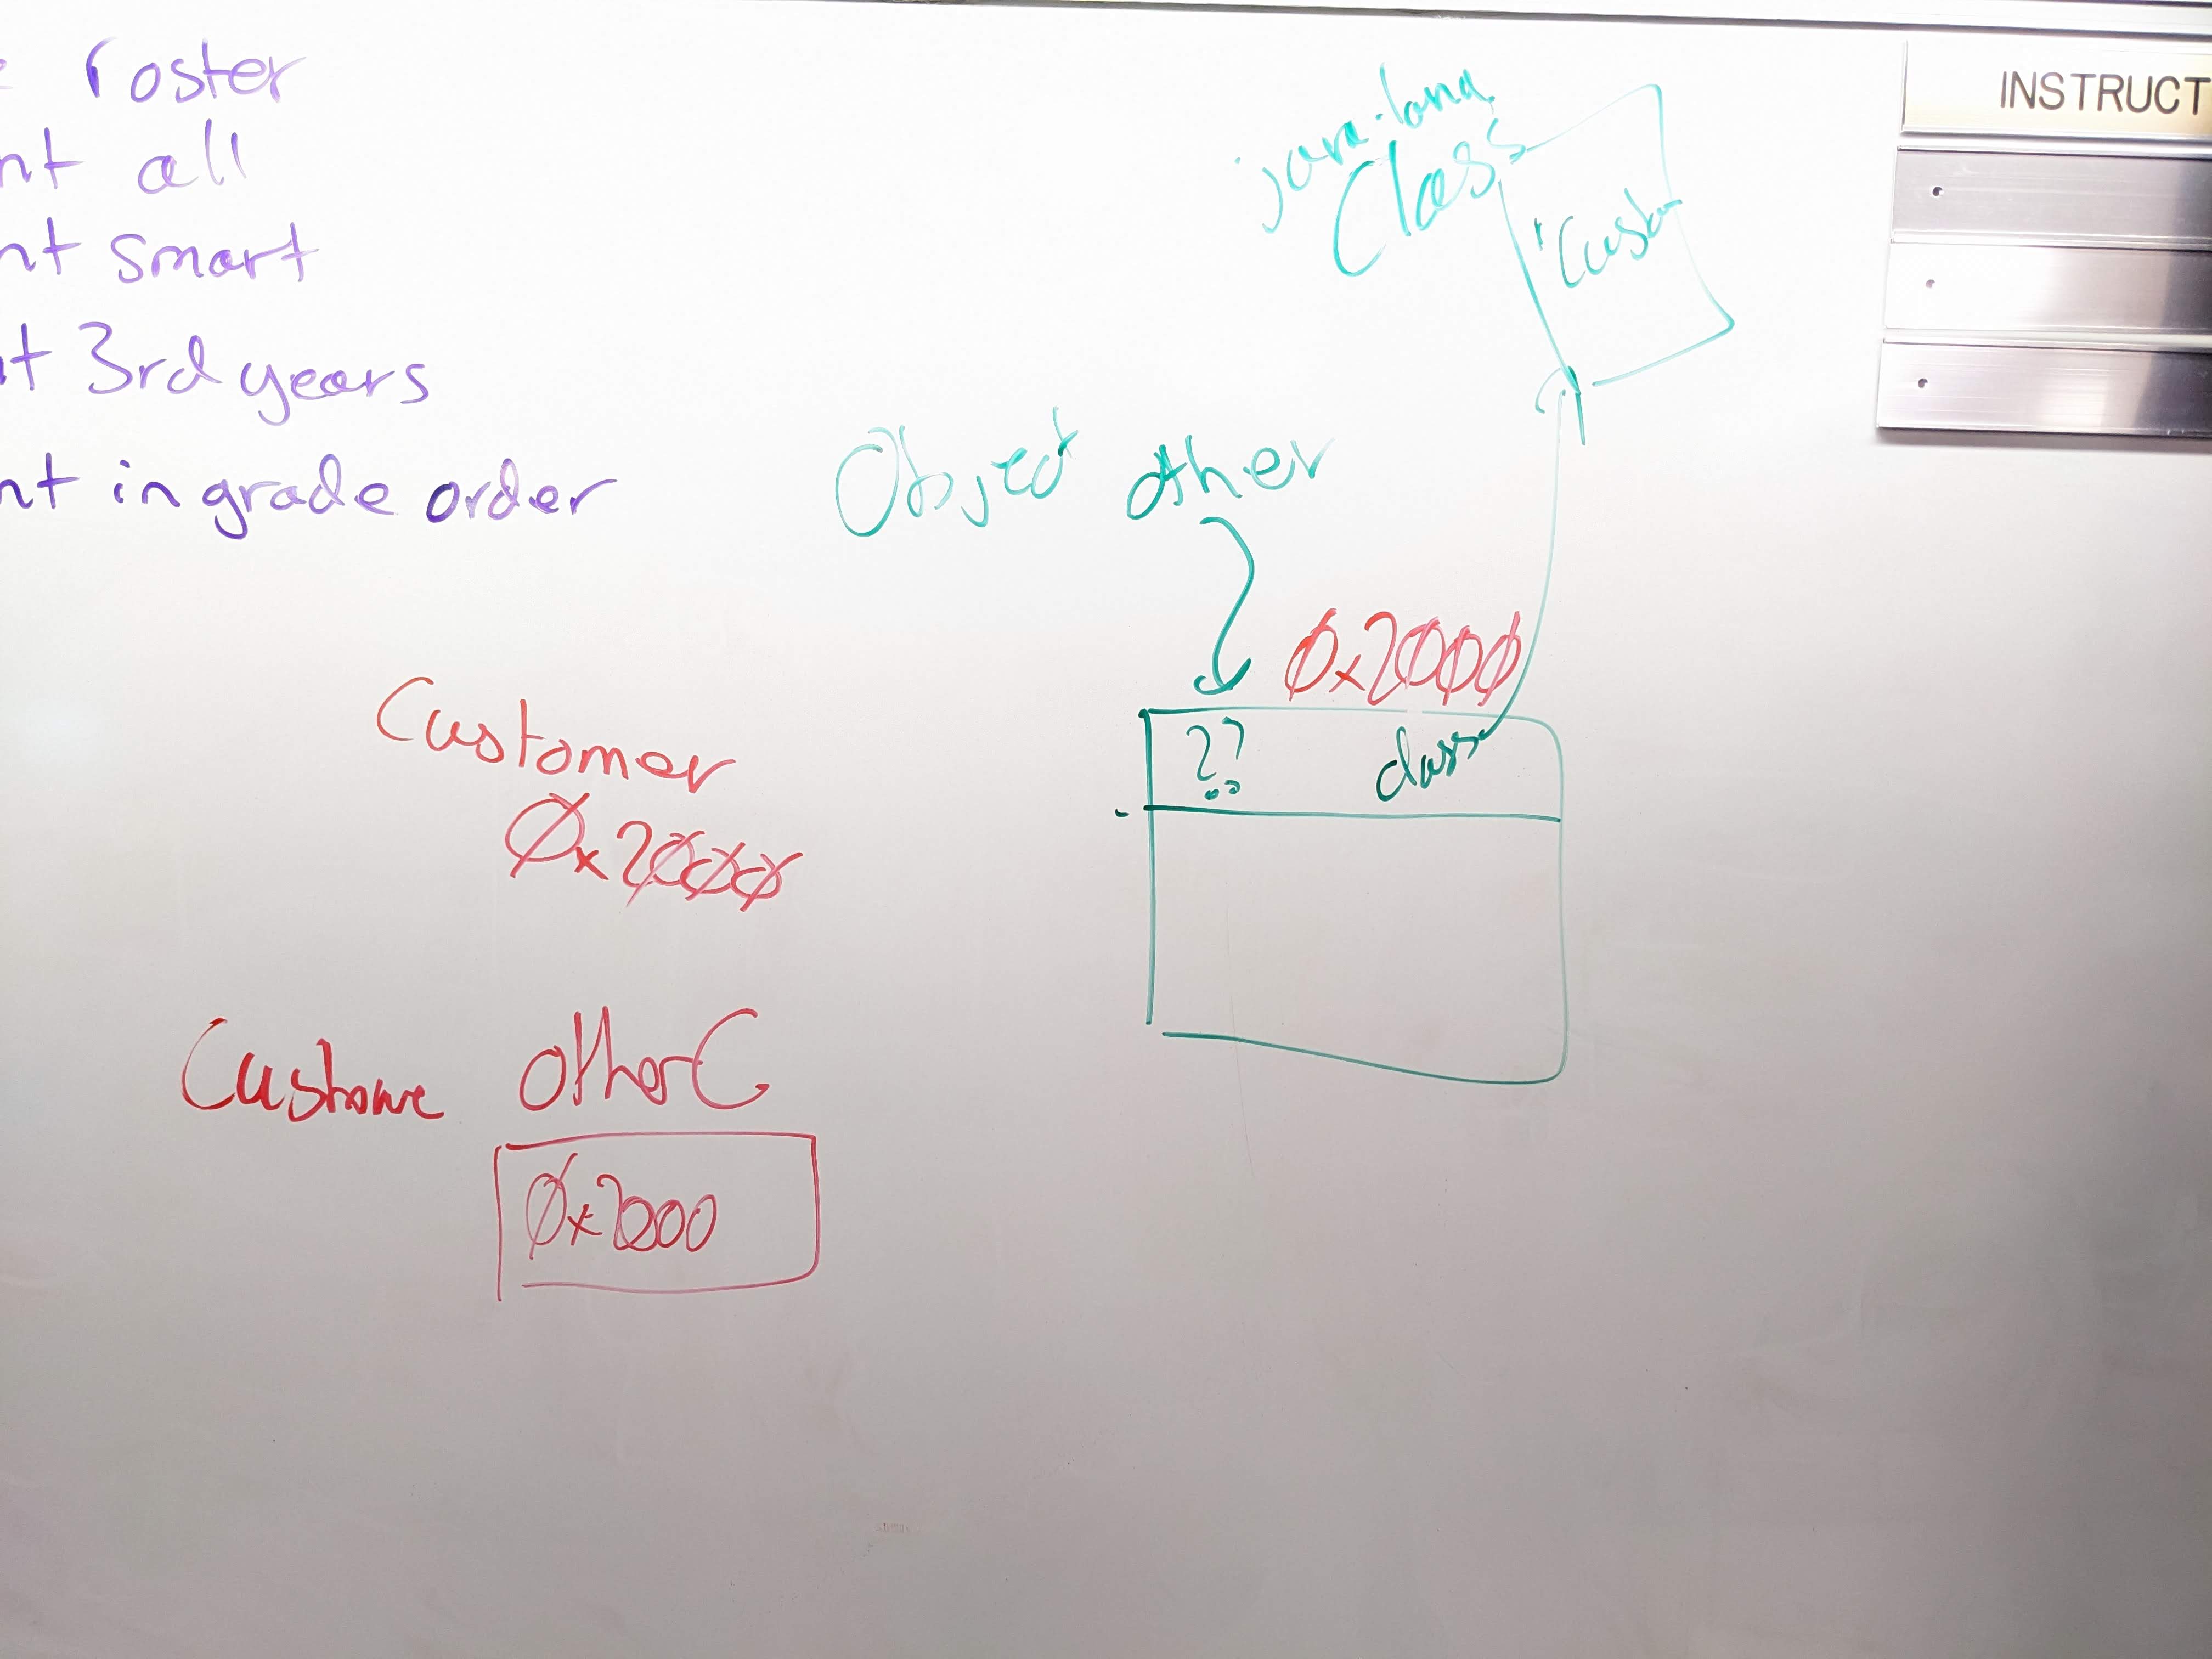 roster
nt all
nt smart
nt 3rd years
nt in grade order
java.lang.
Class
"Custom
Object other
0x2000
?? class
Customer
0x2000
Custome otherC
0x2000
INSTRUCT